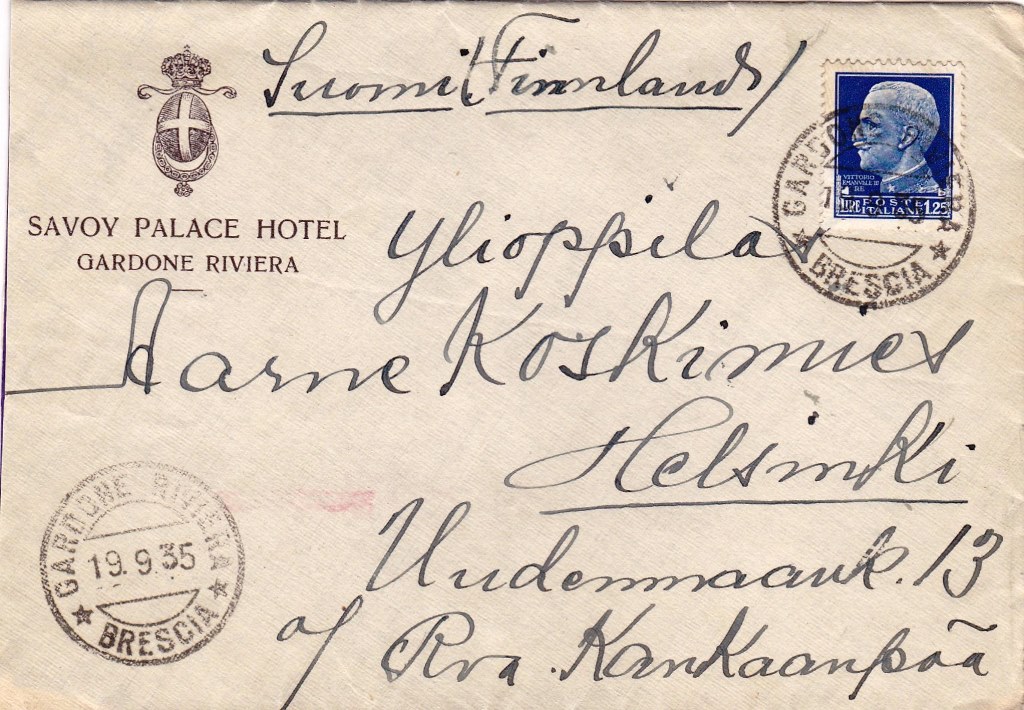 Suomi (Finnland)
SAVOY PALACE HOTEL
GARDONE RIVIERA
VITTORIO
EMANVELE III
RE
LIRE POSTE ITALIANE 1.25
GARDONE RIVIERA
BRESCIA
Ylioppilas
Aarne Koskimies
Helsinki
Uudenmaank. 13
c/o Rva. Kankaanpää
GARDONE RIVIERA
19.9.35
BRESCIA